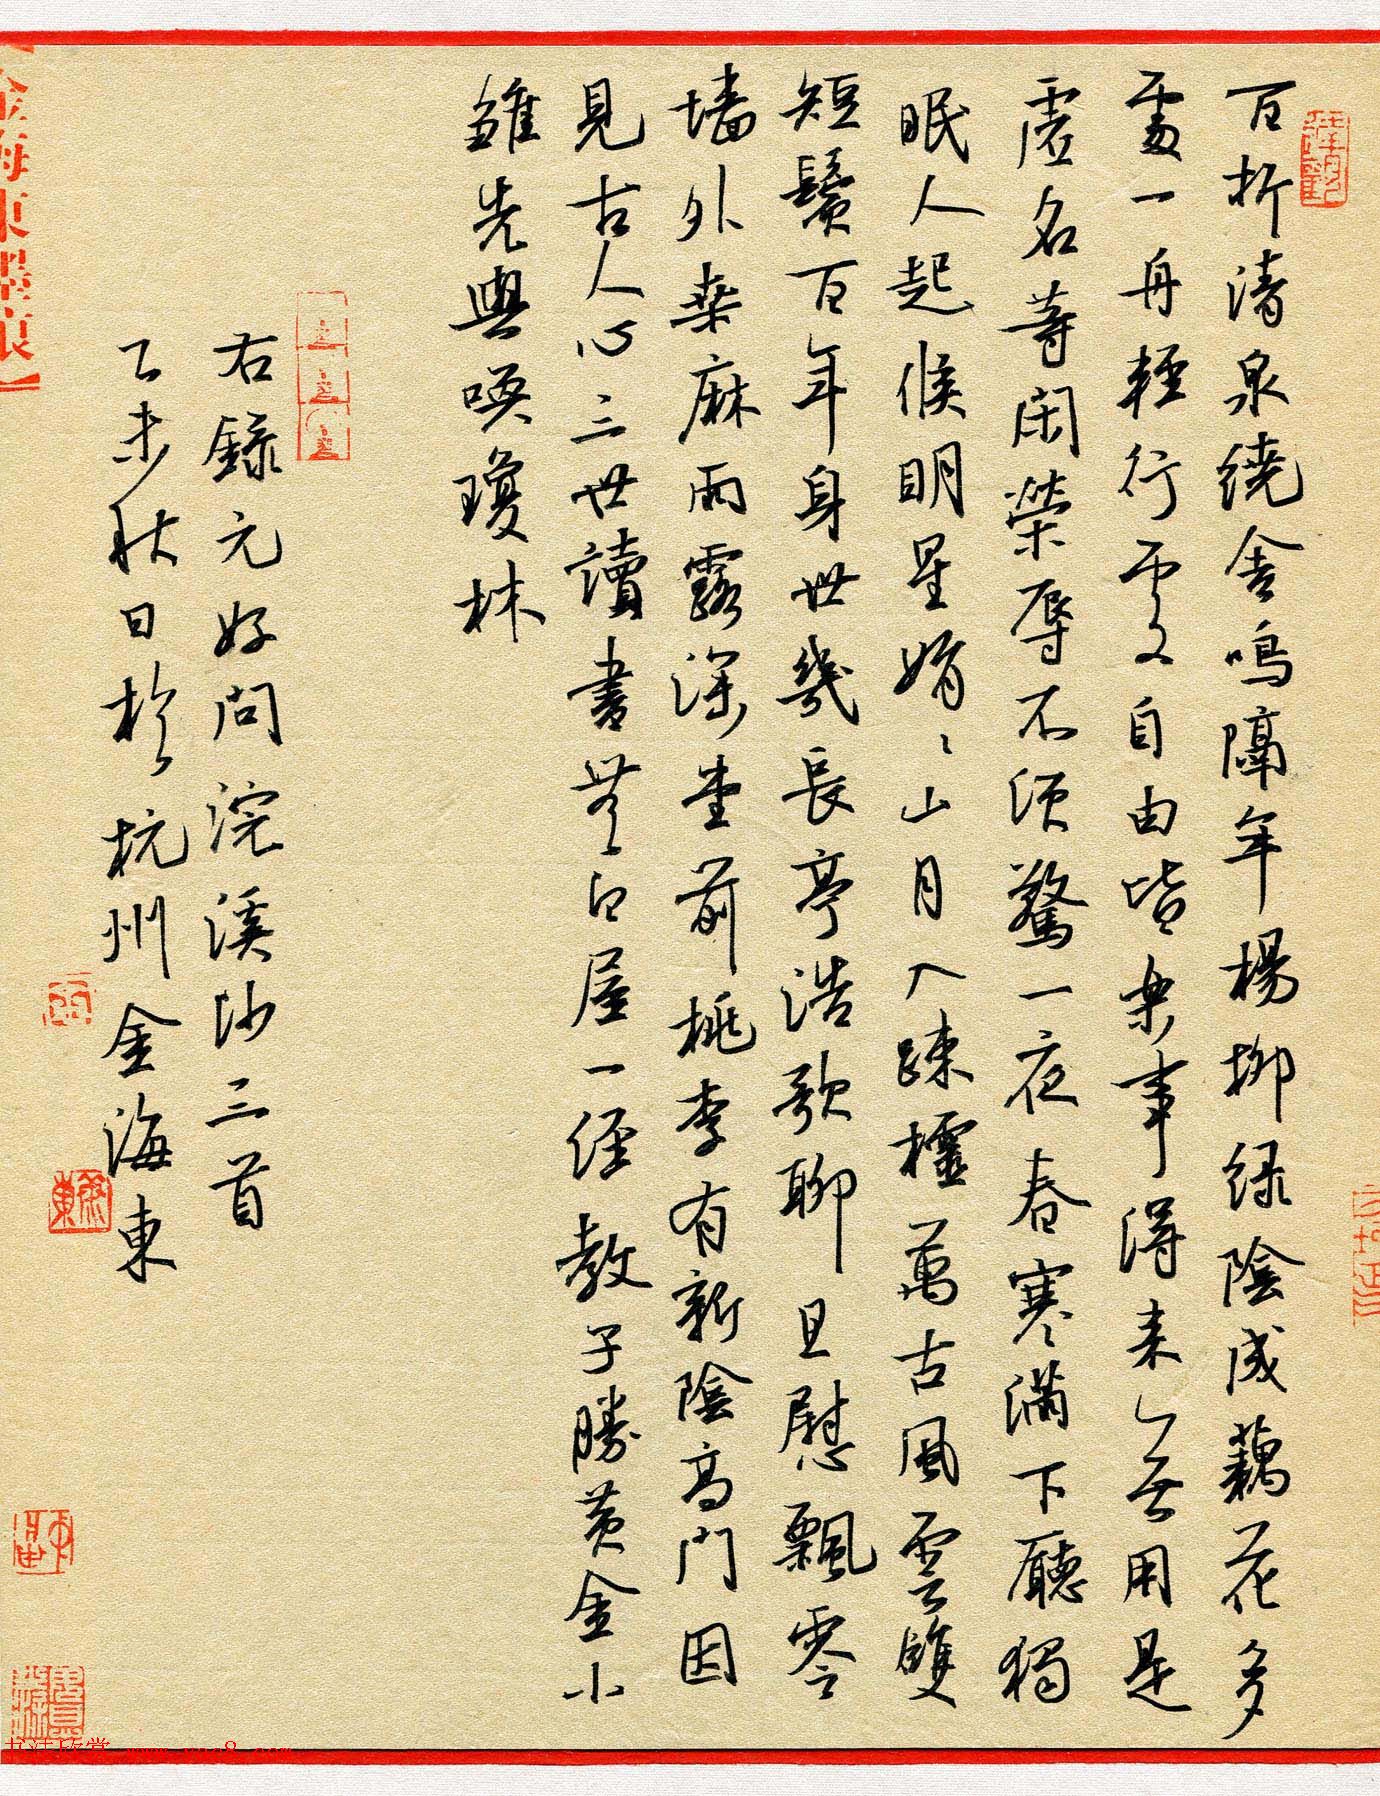 百折清泉繞舍鳴隔年楊柳綠陰成藕花多
處一舟輕行處自由皆樂事得来無用是
虛名等閑榮辱不須驚一夜春寒滿下廳獨
眠人起候明星娟〻山月入疎櫺萬古風雲雙
短鬢百年身世幾長亭浩歌聊且慰飄零
墙外桑麻雨露深堂前桃李有新陰高門因
見古人心三世讀書無白屋一經教子勝黃金小
雛先與喚瓊林
右錄元好問浣溪沙三首
乙未秋日於杭州金海東
金海東墨痕】